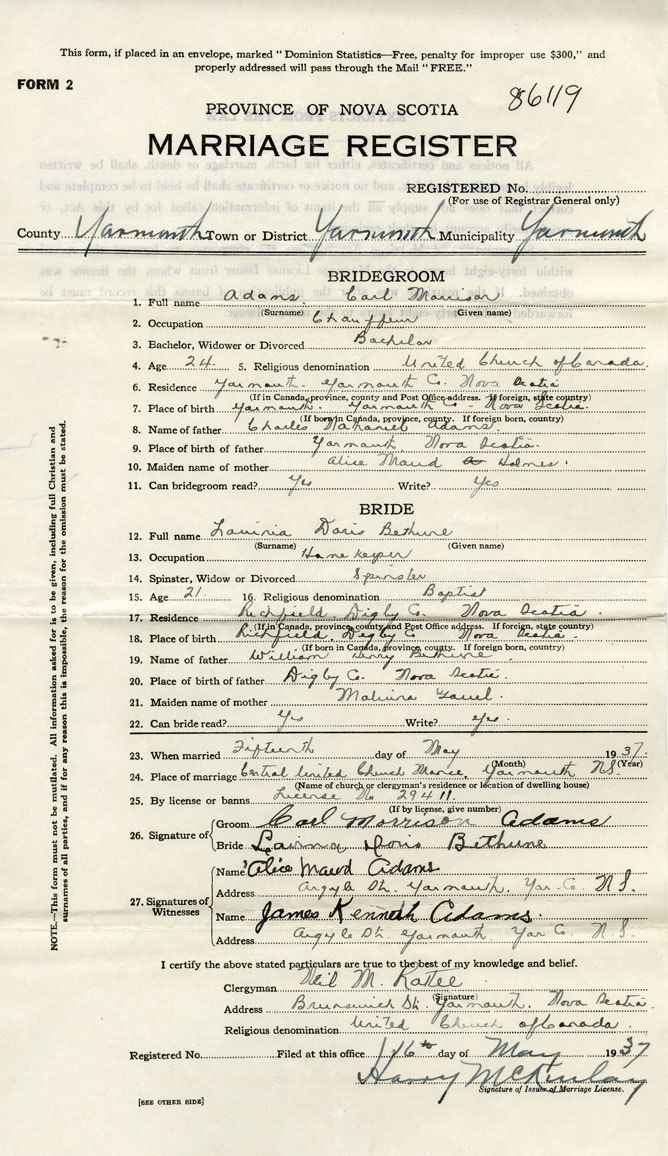 This form, if placed in an envelope, marked "Dominion Statistics—Free, penalty for improper use $300," and
properly addressed will pass through the Mail "FREE."
FORM 2
86119
PROVINCE OF NOVA SCOTIA
MARRIAGE REGISTER
REGISTERED No.
(For use of Registrar General only)
County Yarmouth Town or District Yarmouth Municipality Yarmouth
BRIDEGROOM
1. Full name Adams Carl Morrison
(Surname) (Given name)
2. Occupation Chauffeur
3. Bachelor, Widower or Divorced Bachelor
4. Age 24 5. Religious denomination United Church of Canada
6. Residence Yarmouth Yarmouth Co. Nova Scotia
(If in Canada, province, county and Post Office address. If foreign, state country)
7. Place of birth Yarmouth Yarmouth Co. Nova Scotia
(If born in Canada, province, county. If foreign born, country)
8. Name of father Charles Nathaniel Adams
9. Place of birth of father Yarmouth Nova Scotia
10. Maiden name of mother Alice Maud Holmes
11. Can bridegroom read? Yes Write? Yes
BRIDE
12. Full name Lavinia Doris Bethune
(Surname) (Given name)
13. Occupation Home keeper
14. Spinster, Widow or Divorced Spinster
15. Age 21 16. Religious denomination Baptist
17. Residence Richfield, Digby Co. Nova Scotia
(If in Canada, province, county and Post Office address. If foreign, state country)
18. Place of birth Richfield, Digby Co Nova Scotia
(If born in Canada, province, county. If foreign born, country)
19. Name of father William Bethune
20. Place of birth of father Digby Co. Nova Scotia
21. Maiden name of mother Malvina
22. Can bride read? Yes Write? Yes
23. When married Fifteenth day of May 1937
(Month) (Year)
24. Place of marriage Central United Church Manse, Yarmouth N.S.
(Name of church or clergyman's residence or location of dwelling house)
25. By license or banns License No 29411
(If by license, give number)
26. Signature of Groom Carl Morrison Adams
Bride Doris Bethune
27. Signatures of Witnesses
Name Alice Maud Adams
Address Argyle St. Yarmouth, Yar. Co N.S.
Name James Kenneth Adams.
Address Argyle St. Yarmouth Yar Co. N.S.
I certify the above stated particulars are true to the best of my knowledge and belief.
Clergyman Neil M.
(Signature)
Address Brunswick St. Yarmouth, Nova Scotia
Religious denomination United Church of Canada
Registered No. Filed at this office 16th day of May 1937
Harry McKinlay
Signature of Issuer of Marriage License.
[SEE OTHER SIDE]
NOTE.—This form must not be mutilated. All information asked for is to be given, including full Christian and
surnames of all parties, and if for any reason this is impossible, the reason for the omission must be stated.